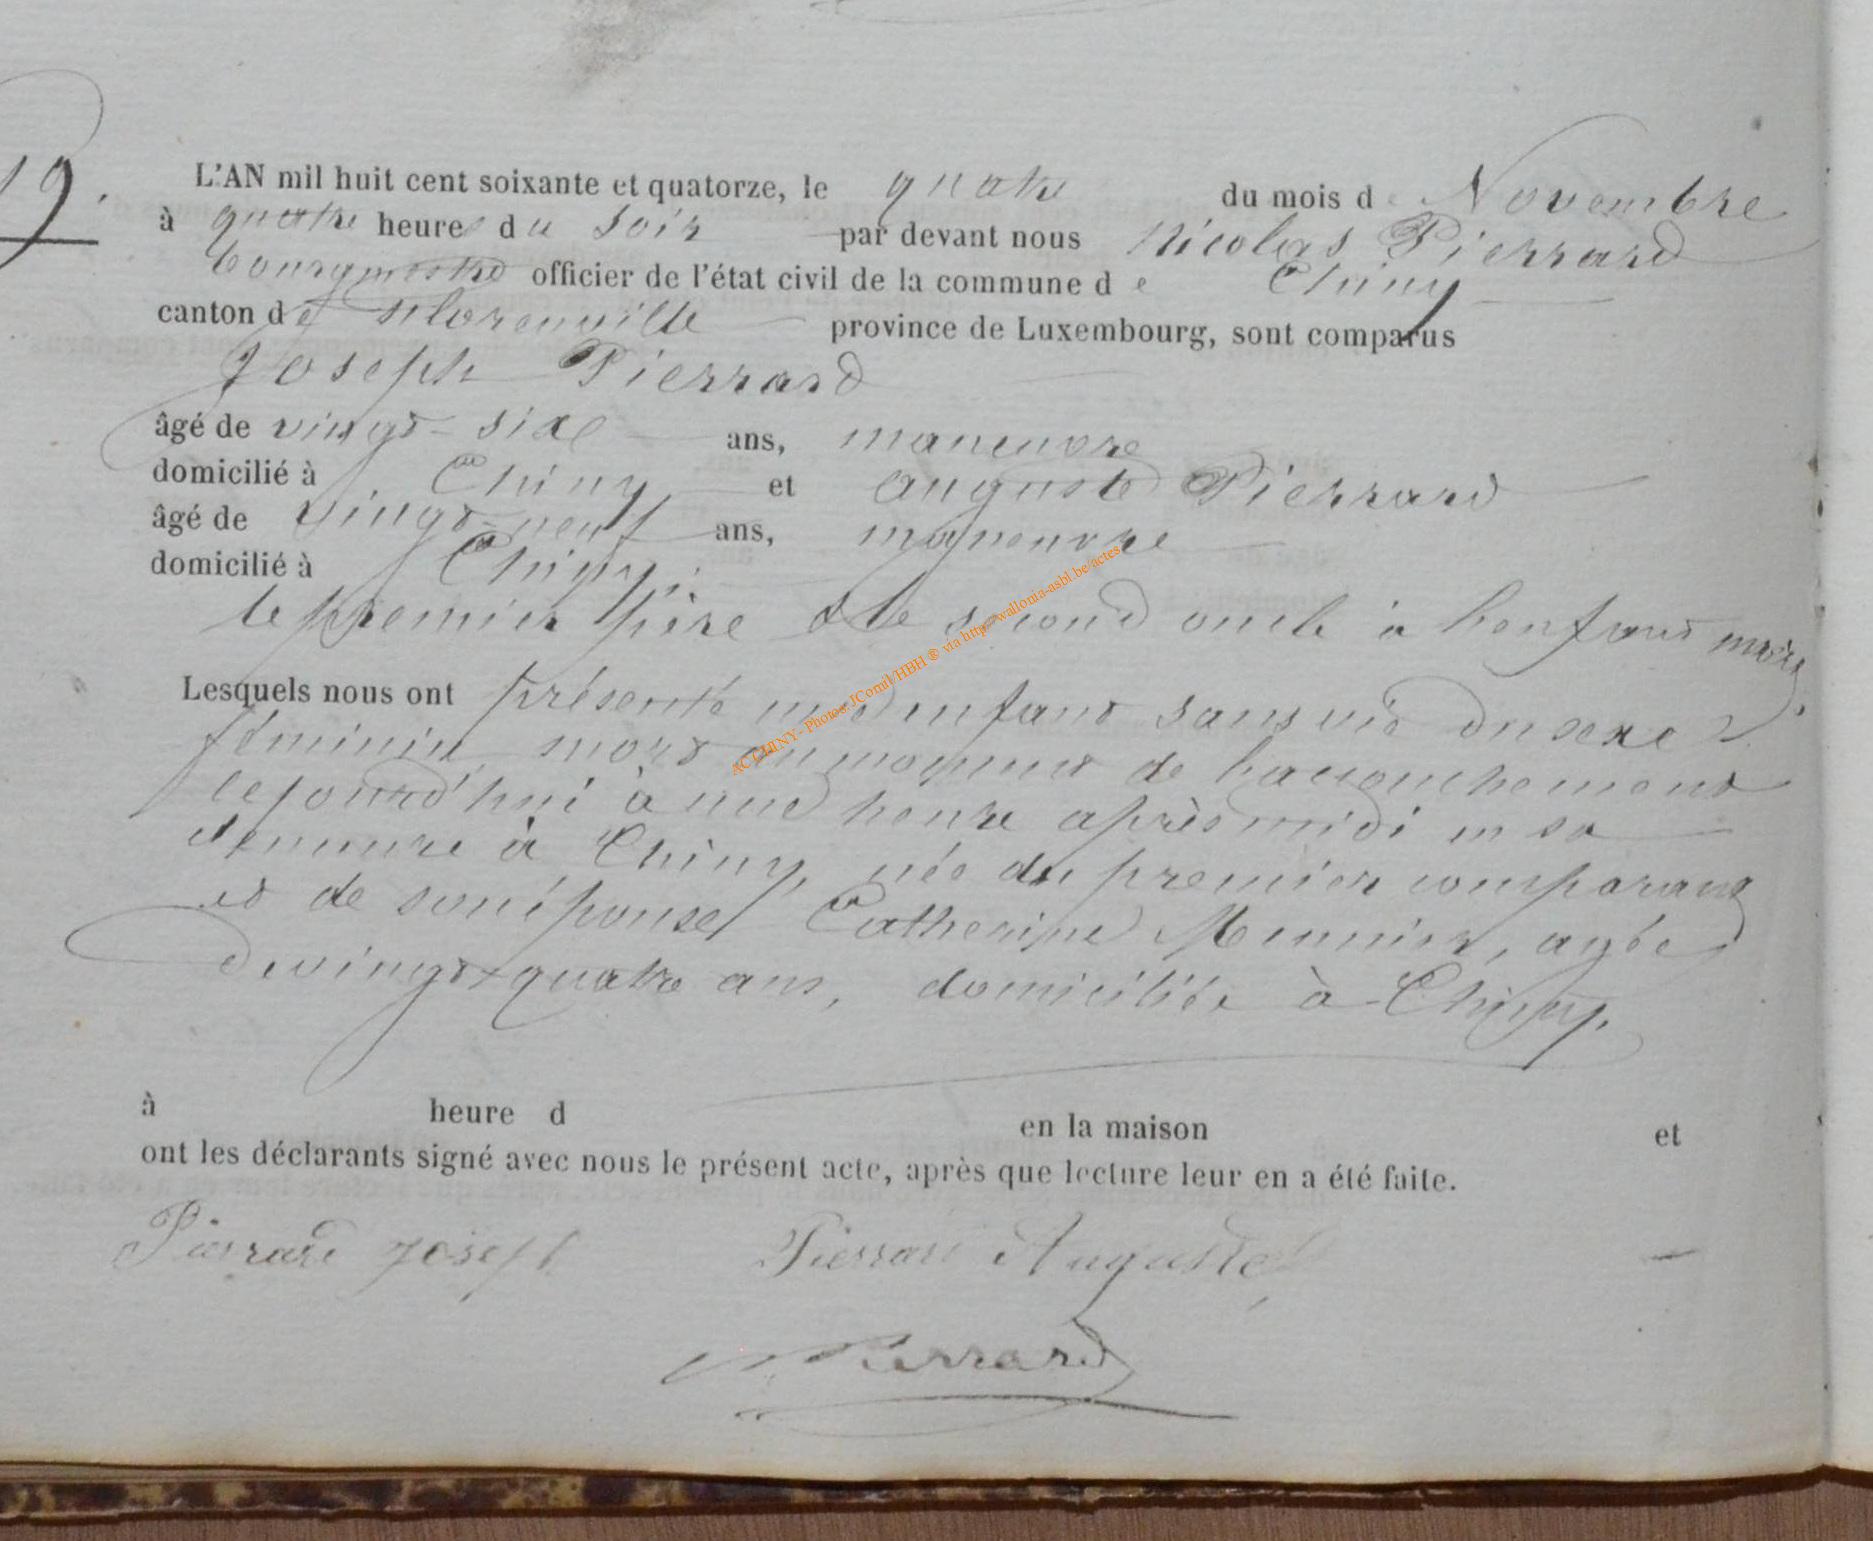 19.
L'AN mil huit cent soixante et quatorze, le quatre du mois de Novembre
à quatre heures du soir par devant nous Nicolas Pierrard
bourgmestre officier de l'état civil de la commune de Chiny
canton de Florenville province de Luxembourg, sont comparus
Joseph Pierrard
âgé de vingt-six ans, manœuvre
domicilié à Chiny et Auguste Pierrard
âgé de vingt-neuf ans, manœuvre
domicilié à Chiny,
le premier père & le second oncle à l'enfant
Lesquels nous ont présenté un enfant sans vie du sexe
féminin mort au moment de l'accouchement
cejourd'hui à une heure après midi en sa
demeure à Chiny, née du premier comparant
et de son épouse Catherine Meunier, agée
de vingt-quatre ans, domiciliée à Chiny.
à heure d en la maison et
ont les déclarants signé avec nous le présent acte, après que lecture leur en a été faite.
Pierrard Joseph Pierrard Auguste
N Pierrard
AC CHINY- Photos JComil/HBH ® via http://wallonia-asbl.be/actes